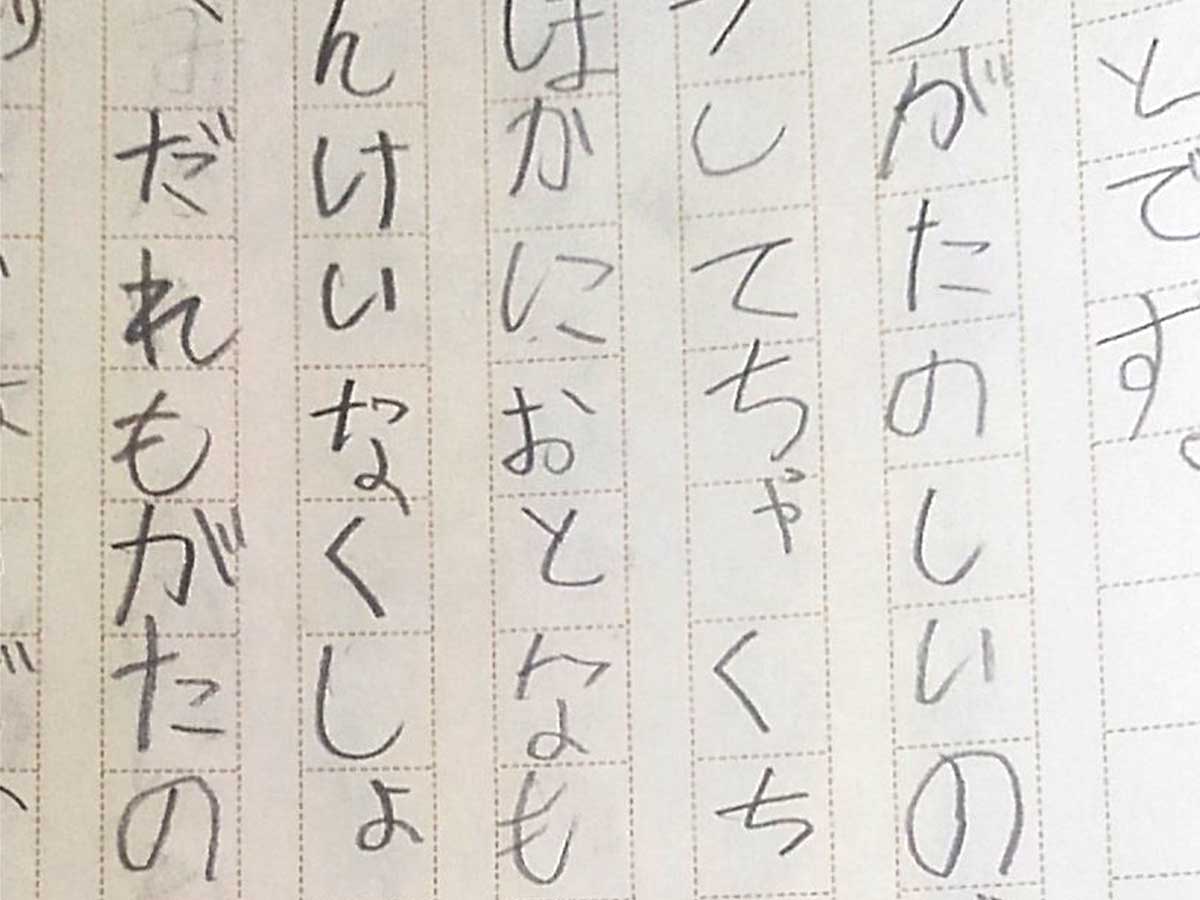 とです。
がたのしいの
してちゃくち
はかにおとなも
んけいなくしょ
だれもがたの